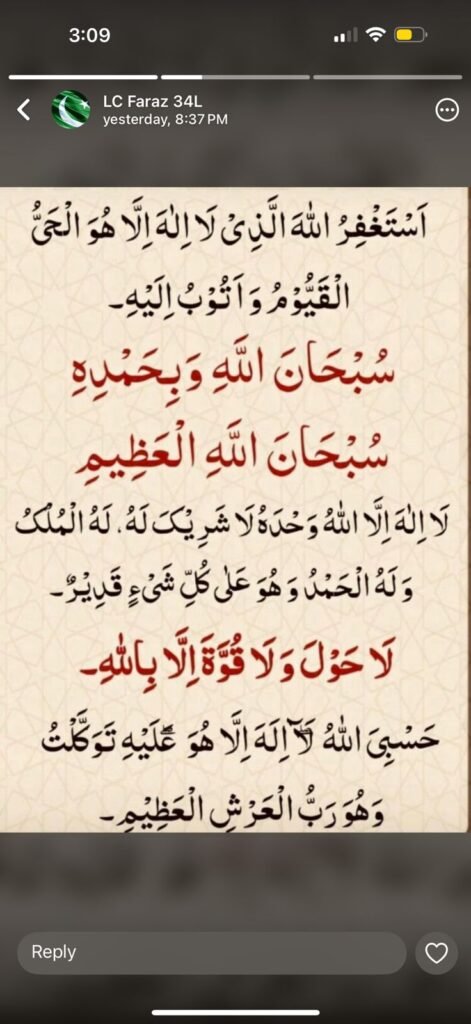 3:09
LC Faraz 34L
yesterday, 8:37 PM
اَسْتَغْفِرُ اللهَ الَّذِیْ لَا اِلٰهَ اِلَّا هُوَ الْحَیُّ
الْقَیُّوْمُ وَ اَتُوْبُ اِلَیْهِ۔
سُبْحَانَ اللَّهِ وَبِحَمْدِهِ
سُبْحَانَ اللَّهِ الْعَظِيمِ
لَا اِلٰهَ اِلَّا اللهُ وَحْدَهٗ لَا شَرِیْکَ لَهٗ، لَهُ الْمُلْکُ
وَ لَهُ الْحَمْدُ وَ هُوَ عَلٰی کُلِّ شَیْءٍ قَدِیْرٌ۔
لَا حَوْلَ وَ لَا قُوَّةَ اِلَّا بِاللهِ۔
حَسْبِیَ اللهُ لَاۤ اِلٰهَ اِلَّا هُوَ ؕ عَلَیْهِ تَوَکَّلْتُ
وَهُوَ رَبُّ الْعَرْشِ الْعَظِیْمِ۔
Reply